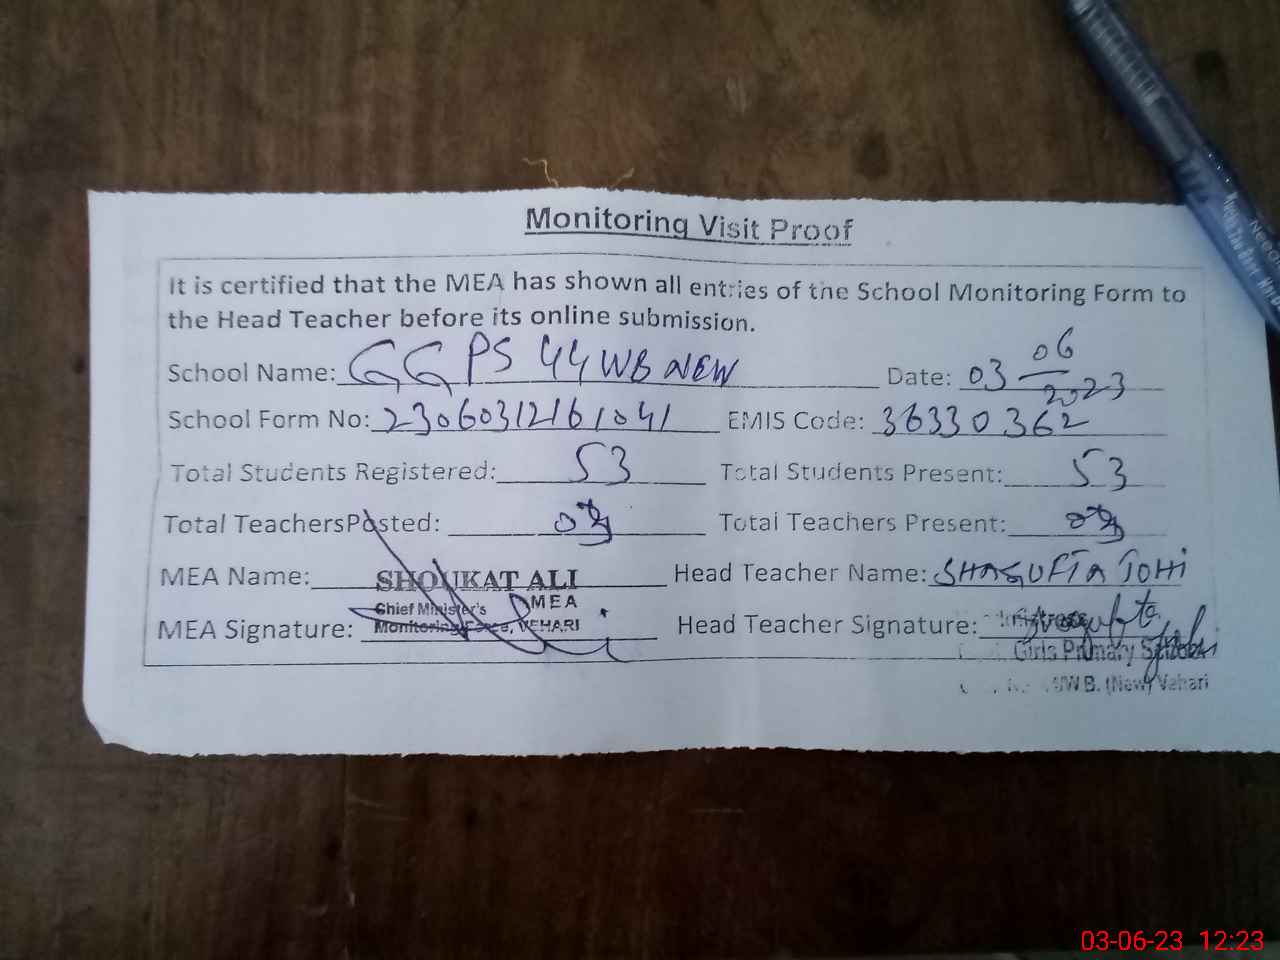 Monitoring Visit Proof
It is certified that the MEA has shown all entries of the School Monitoring Form to
the Head Teacher before its online submission.
School Name: GGPS 44 WB NEW Date: 03 06 2023
School Form No: 23060312161041 EMIS Code: 36330362
Total Students Registered: 53 Total Students Present: 53
Total TeachersPosted: Total Teachers Present:
MEA Name: SHOUKAT ALI Head Teacher Name: SHAGUFTA
Chief Minister's MEA
MEA Signature: Monitoring Force, VEHARI Head Teacher Signature:
Girls Primary School
W B. (New) Vehari
03-06-23 12:23